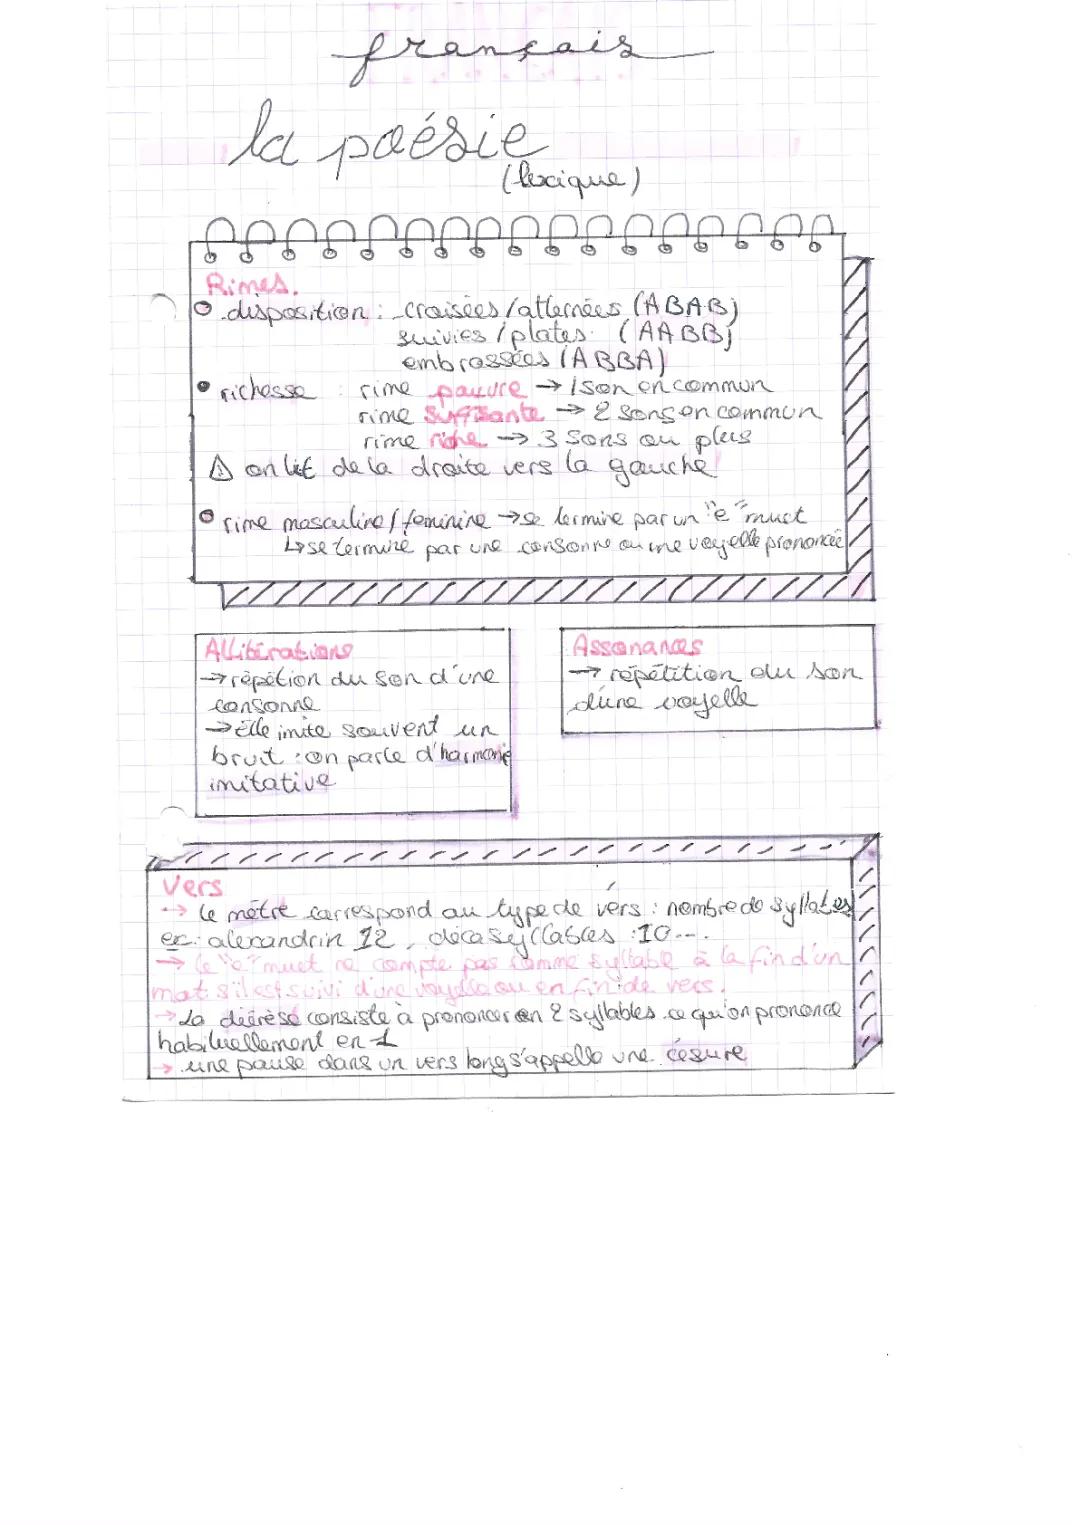 français
la poésie
(lexique)
Rimes.
disposition : croisées/alternées (ABAB)
suivies/plates (AABB)
embrassées (ABBA)
richesse : rime pauvre → 1 son en commun
rime suffisante → 2 sons en commun
rime riche → 3 sons ou plus
⚠ on lit de la droite vers la gauche
rime masculine/féminine → se termine par un "e" muet
↳ se termine par une consonne ou une voyelle prononcée
Allitérations
→ répétion du son d'une
consonne
→ Elle imite souvent un
bruit : on parle d'harmonie
imitative
Assonances
→ répétition du son
d'une voyelle
Vers
→ le mètre correspond au type de vers : nombre de syllabes
ex : alexandrin 12, décasyllabes : 10...
→ le "e" muet ne compte pas comme syllabe à la fin d'un
mot s'il est suivi d'une voyelle ou en fin de vers.
→ La diérèse consiste à prononcer en 2 syllabes ce qu'on prononce
habituellement en 1
→ une pause dans un vers long s'appelle une césure